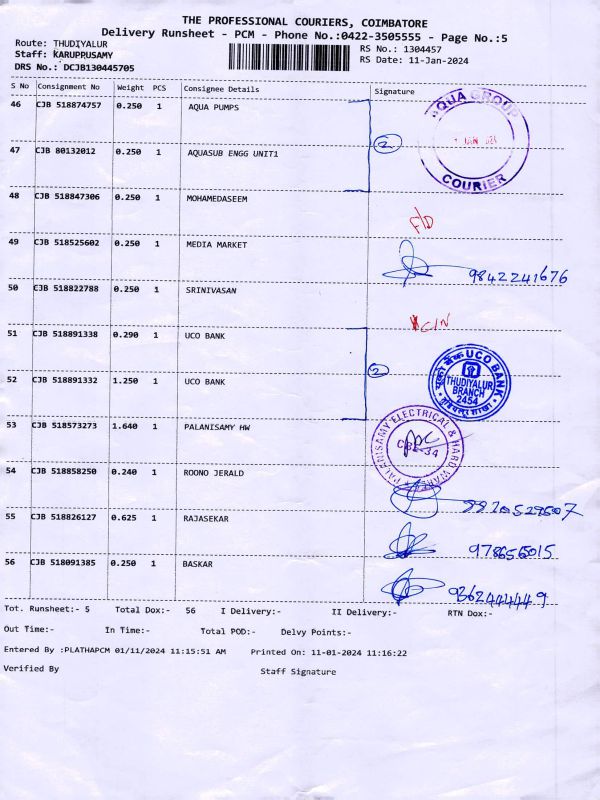 THE PROFESSIONAL COURIERS, COIMBATORE
Delivery Runsheet - PCM - Phone No.:0422-3505555 - Page No.:5
Route: THUDIYALUR
Staff: KARUPPUSAMY
DRS No.: DCJB130445705
RS No.: 1304457
RS Date: 11-Jan-2024
S No Consignment No Weight PCS Consignee Details Signature
46 CJB 518874757 0.250 1 AQUA PUMPS
AQUA GROUP
COURIER
2
47 CJB 80132012 0.250 1 AQUASUB ENGG UNIT1
48 CJB 518847306 0.250 1 MOHAMEDASEEM
F/D
49 CJB 518525602 0.250 1 MEDIA MARKET
9842241676
50 CJB 518822788 0.250 1 SRINIVASAN
C/N
51 CJB 518891338 0.290 1 UCO BANK
2
UCO BANK
THUDIYALUR
BRANCH
2454
52 CJB 518891332 1.250 1 UCO BANK
53 CJB 518573273 1.640 1 PALANISAMY HW
PALANISAMY ELECTRICAL & HARDWARE
CBE-34
54 CJB 518858250 0.240 1 ROONO JERALD
55 CJB 518826127 0.625 1 RAJASEKAR
56 CJB 518091385 0.250 1 BASKAR
Tot. Runsheet:- 5 Total Dox:- 56 I Delivery:- II Delivery:- RTN Dox:-
Out Time:- In Time:- Total POD:- Delvy Points:-
Entered By :PLATHAPCM 01/11/2024 11:15:51 AM Printed On: 11-01-2024 11:16:22
Verified By Staff Signature